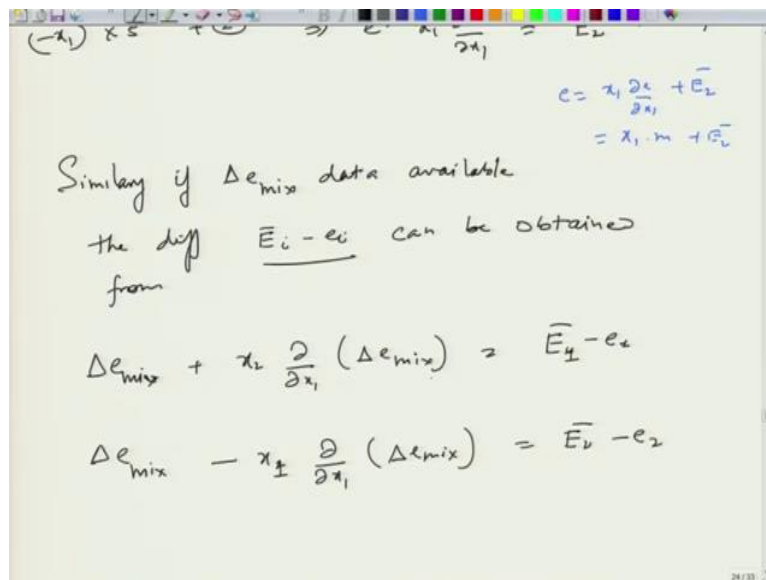 (-x₁) × 5 + ② ⇒ e - x₁ ∂/∂x₁ = E₂
e = x₁ ∂e/∂x₁ + Ē₂
= x₁ . m + Ē₂
Similary if Δe_mix data available
the diff Ē_i - e_i can be obtained
from
Δe_mix + x₂ ∂/∂x₁ (Δe_mix) = Ē₁ - e₁
Δe_mix - x₁ ∂/∂x₁ (Δe_mix) = Ē₂ - e₂
24 / 33